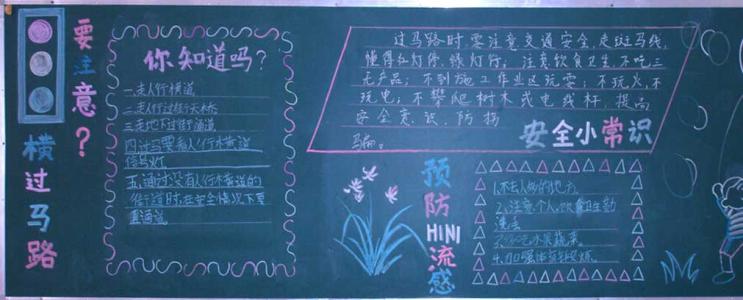 要注意?
横过马路
你知道吗?
一.走人行横道
二.走人行过街天桥
三.走地下过街通道
四.过马路要看人行横道
信号灯
五.通过没有人行横道的
街道时,在安全情况下要
直通过
过马路时,要注意交通安全,走斑马线,
懂得红灯停、绿灯行;注意饮食卫生,不吃三
无产品;不到施工作业区玩耍;不玩火,不
玩电;不攀爬树木或电线杆,提高
安全意识,防拐
安全小常识
预防H1N1流感
1.不去人多的地方
2.注意个人,饮食卫生勤
洗手
3.多吃水果蔬菜
4.加强体育锻炼.